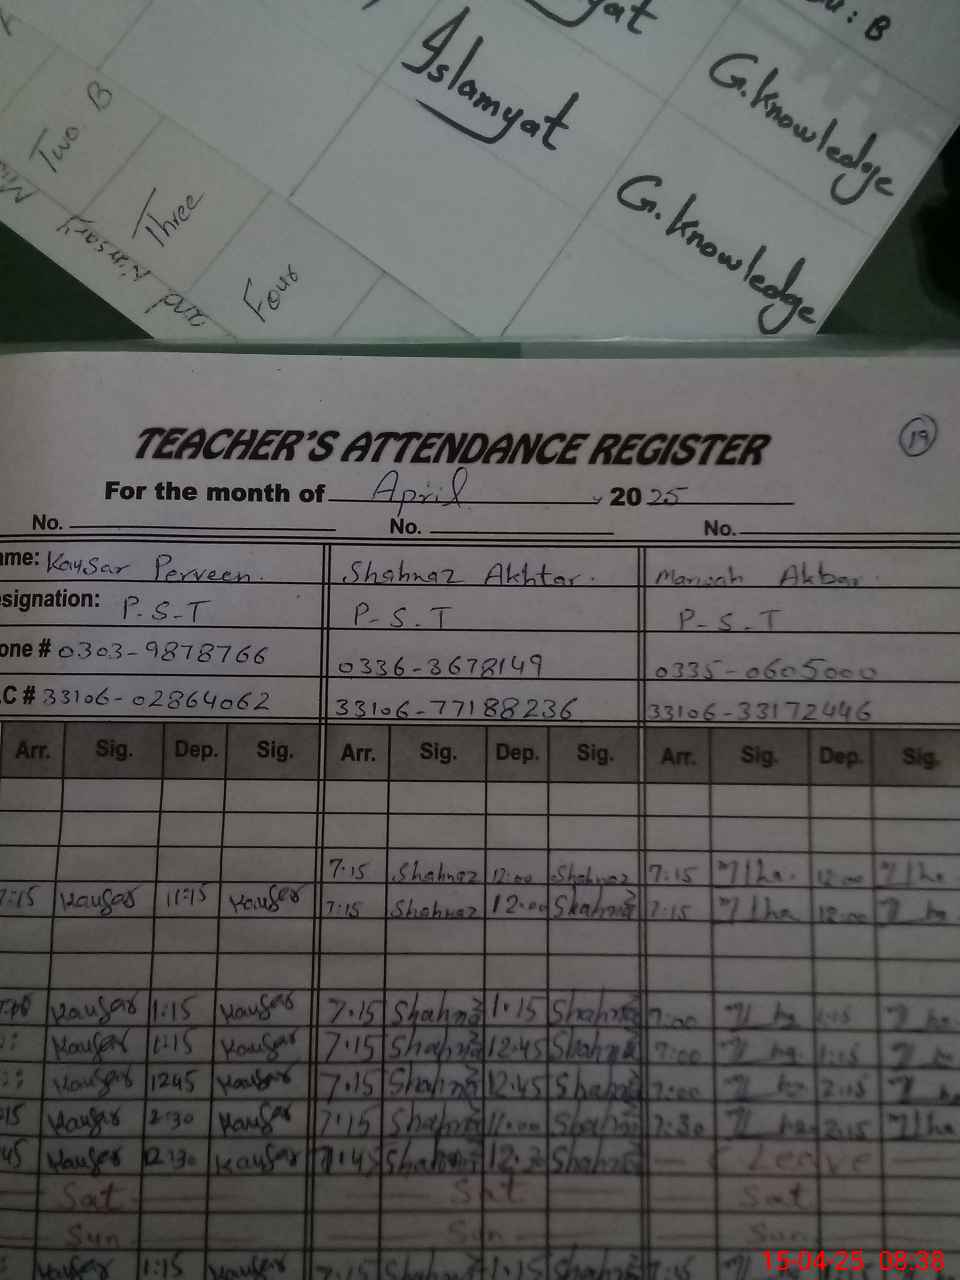 Islamyat
G.Knowledge
G.Knowledge
Two B
Three
Four
and Nursary
TEACHER'S ATTENDANCE REGISTER
19
For the month of April 2025
No. No. No.
ame: Kausar Perveen. Shahnaz Akhtar. Marwah Akbar.
esignation: P-S-T P-S.T P-S.T
one # 0303-9878766 0336-3678149 0335-0605000
.C # 33106-02864062 33106-77188236 33106-33172446
Arr. Sig. Dep. Sig. Arr. Sig. Dep. Sig. Arr. Sig. Dep. Sig.
7:15 Shahnaz 12:00 Shahnaz 7:15 12:00
7:15 Kausar 11:15 Kausar 7:15 Shahnaz 12:00 Shahnaz 7:15 12:00
Kausar 1:15 Kausar 7.15 Shahnaz 1.15 Shahnaz 7:00 1:15
Kausar 1:15 Kausar 7.15 Shahnaz 12.45 Shahnaz 7:00 1:15
Kausar 1245 Kausar 7.15 Shahnaz 12.45 Shahnaz 7:00 2:15
15 Kausar 2:30 Kausar 7:15 Shahnaz 11:00 Shahnaz 7:30 2:15
45 Kausar 12:30 Kausar 7:45 Shahnaz 12:3 Shahnaz Leave
Sat Sat Sat
Sun Sun Sun
Kausar 1:15 Kausar 7:15 Shahnaz 1:15 Shahnaz
15-04-25 08:38